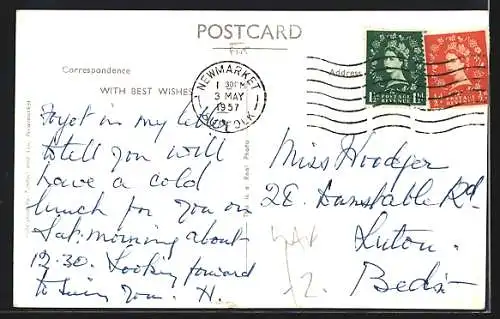 POSTCARD
Correspondence
Address
WITH BEST WISHES
NEWMARKET
1 30 PM
3 MAY
1957
SUFFOLK
1½D POSTAGE REVENUE 1½D
½D POSTAGE REVENUE
Forgot in my letter
to tell you will
have a cold
lunch for you on
Sat: morning about
12.30. Looking forward
to seeing you. H.
This is a Real Photo
Miss Woodger
28. Dunstable Rd
Luton.
Beds.
2.